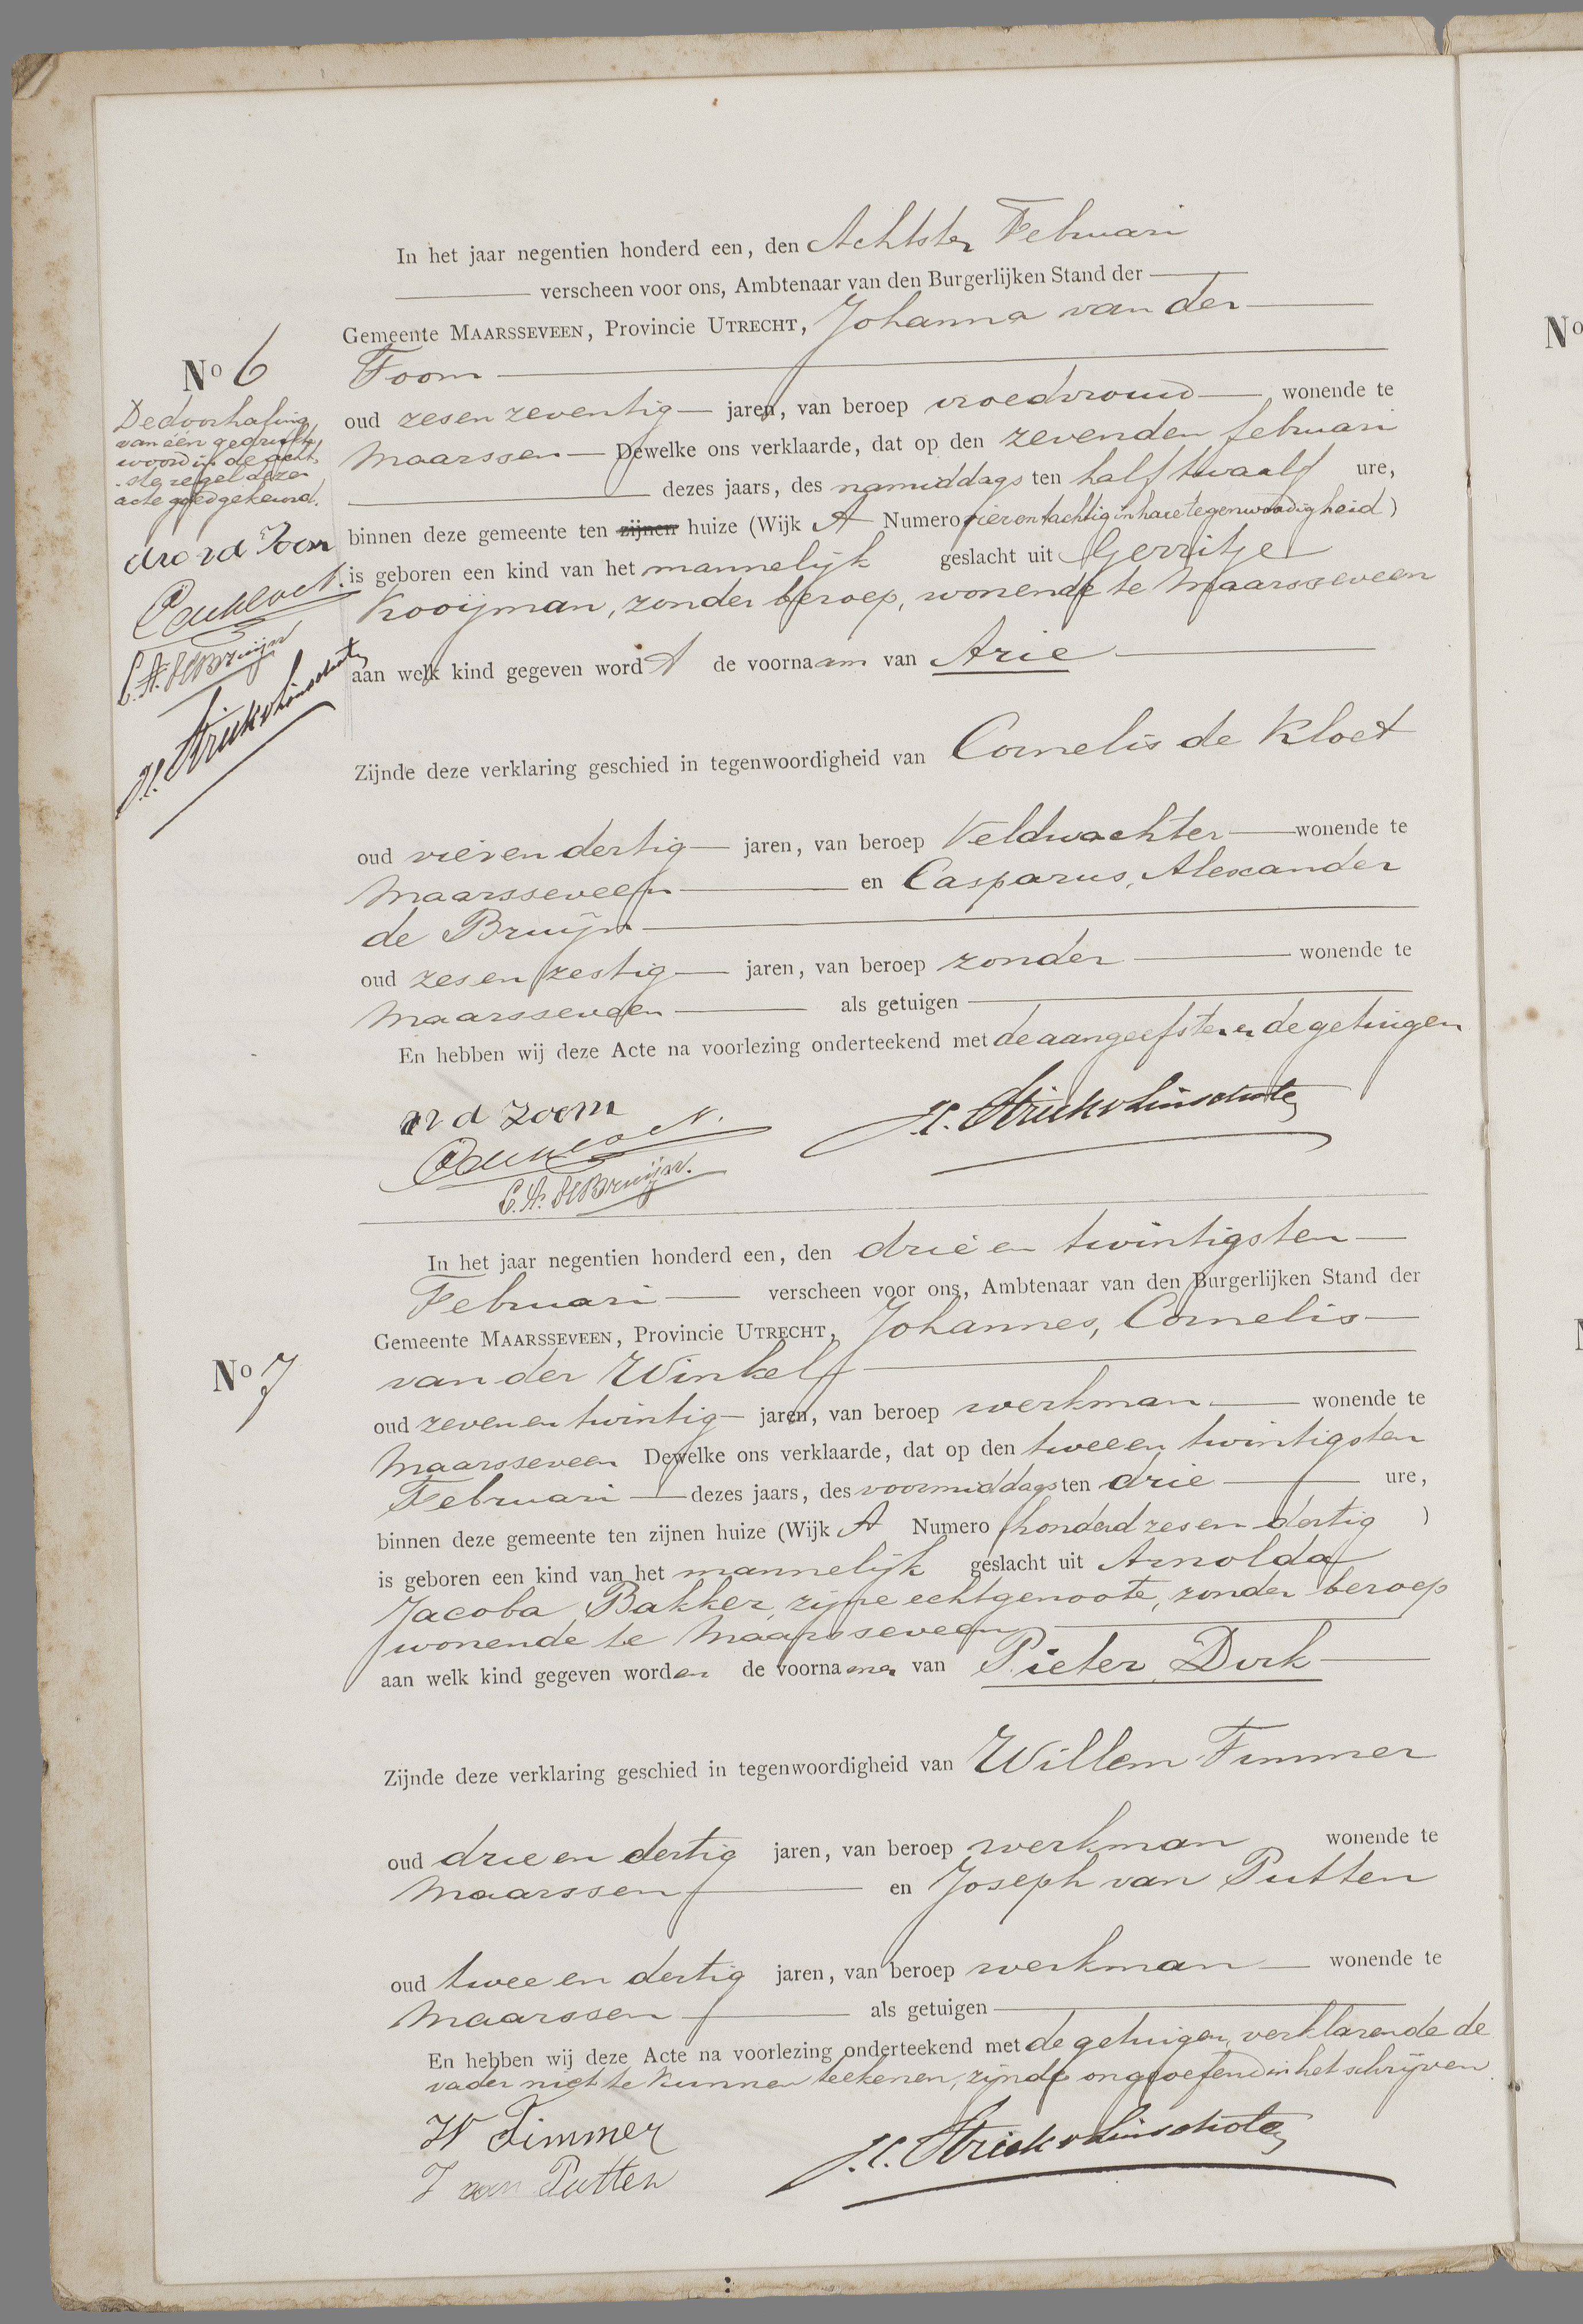 In het jaar negentien honderd een, den Achtsten Februari
verscheen voor ons, Ambtenaar van den Burgerlijken Stand der
Gemeente MAARSSEVEEN, Provincie UTRECHT, Johanna van der
Toom
No 6
oud zesenzeventig jaren, van beroep vroedvrouw wonende te
Maarssen Dewelke ons verklaarde, dat op den zevenden februari
dezes jaars, des namiddags ten half twaalf ure,
binnen deze gemeente ten zijnen huize (Wijk A Numero vierentachtig in hare tegenwoordigheid)
is geboren een kind van het mannelijk geslacht uit Gerritje
Kooijman, zonder beroep, wonende te Maarsseveen
aan welk kind gegeven wordt de voornaam van Arie
De doorhaling
van één gedrukt
woord in de acht
ste regel dezer
acte goedgekeurd.
vd Zoom
C. A. de Bruijn
Zijnde deze verklaring geschied in tegenwoordigheid van Cornelis de Kloet
oud vierendertig jaren, van beroep Veldwachter wonende te
Maarsseveen en Casparus, Alexander
de Bruijn
oud zesenzestig jaren, van beroep zonder wonende te
Maarsseveen als getuigen
En hebben wij deze Acte na voorlezing onderteekend met de aangeefster en de getuigen
vd Zoom
C. A. de Bruijn.
In het jaar negentien honderd een, den drie en twintigsten
Februari verscheen voor ons, Ambtenaar van den Burgerlijken Stand der
Gemeente MAARSSEVEEN, Provincie UTRECHT, Johannes, Cornelis
No 7
van der Winkel
oud zevenentwintig jaren, van beroep werkman wonende te
Maarsseveen Dewelke ons verklaarde, dat op den tweeen twintigsten
Februari dezes jaars, des voormiddags ten drie ure,
binnen deze gemeente ten zijnen huize (Wijk A Numero honderd zesendertig )
is geboren een kind van het mannelijk geslacht uit Arnolda
Jacoba Bakker, zijne echtgenoote, zonder beroep
wonende te Maarsseveen
aan welk kind gegeven worden de voornamen van Pieter Dirk
Zijnde deze verklaring geschied in tegenwoordigheid van Willem Timmer
oud drie en dertig jaren, van beroep werkman wonende te
Maarssen en Joseph van Putten
oud twee en dertig jaren, van beroep werkman wonende te
Maarssen als getuigen
En hebben wij deze Acte na voorlezing onderteekend met de getuigen, verklarende de
vader niet te kunnen teekenen, zijnde ongeoefend in het schrijven.
W Timmer
J van Putten
No